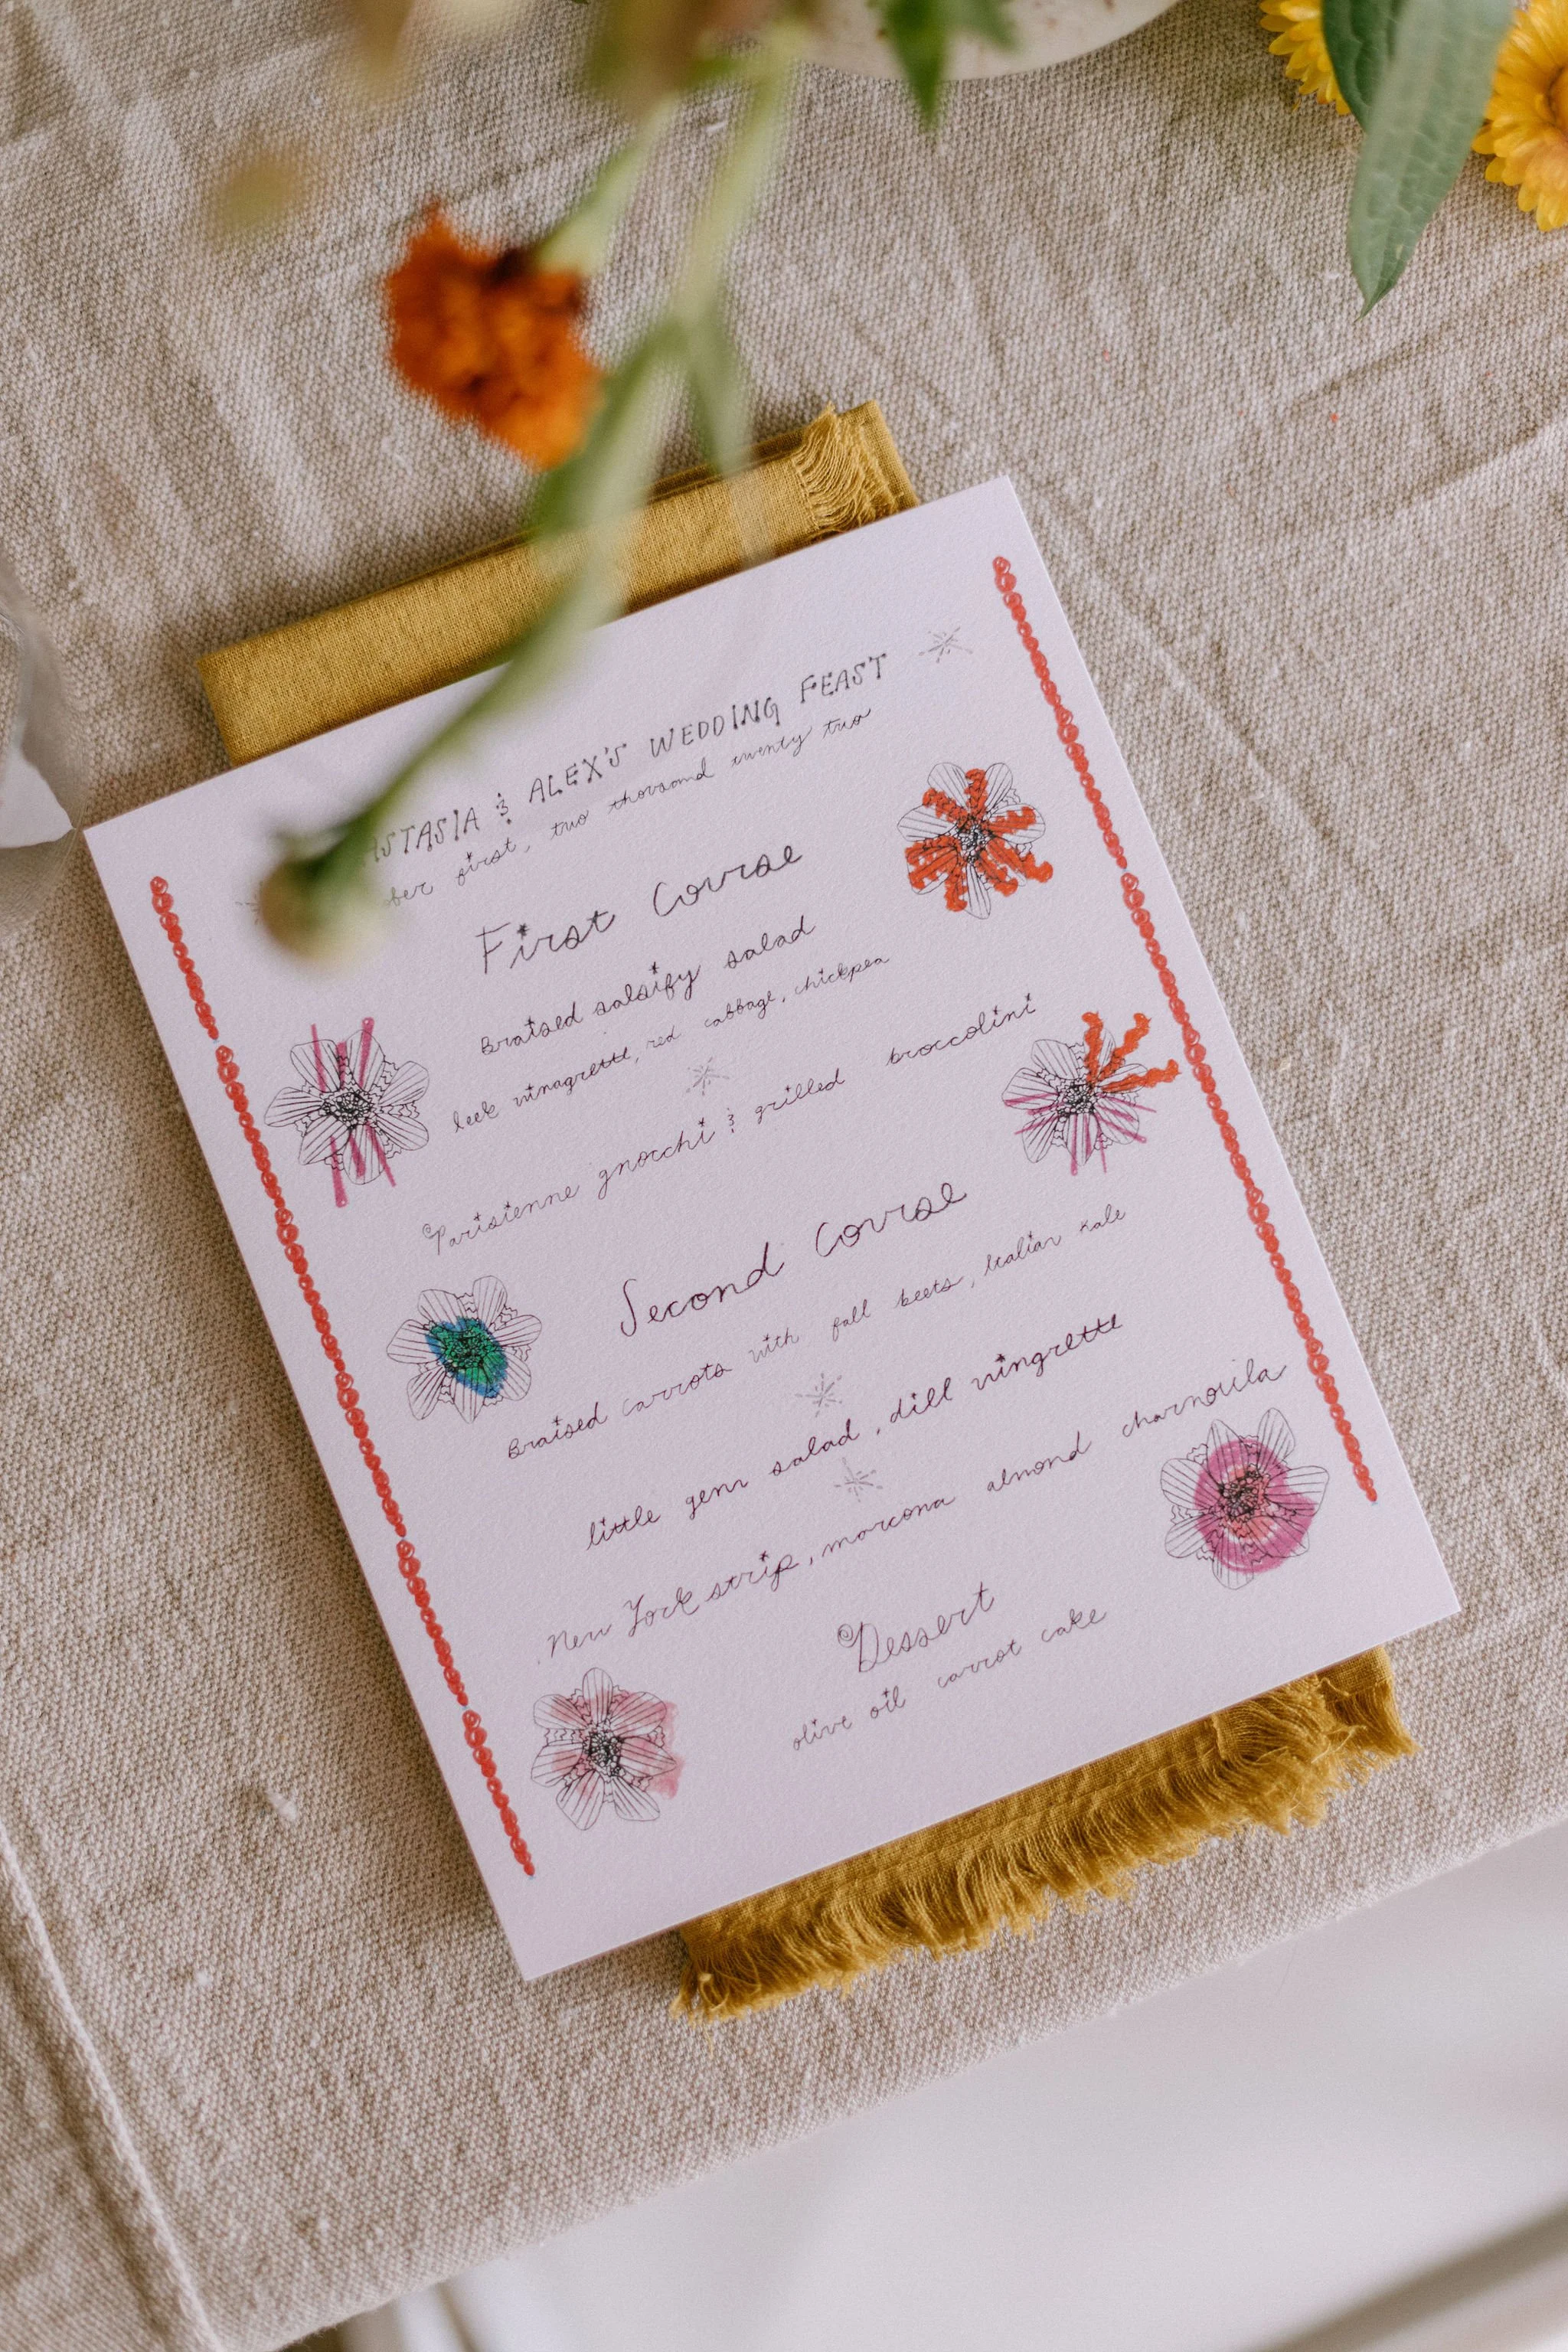 ASTASIA & ALEX'S WEDDING FEAST
ber first, two thousand twenty two
First Course
Braised salsify salad
leek vinagrette, red cabbage, chickpea
Parisienne gnocchi & grilled broccolini
Second Course
Braised carrots with fall beets, Italian kale
little gem salad, dill vingrette
New York strip, marcona almond charmoula
Dessert
olive oil carrot cake